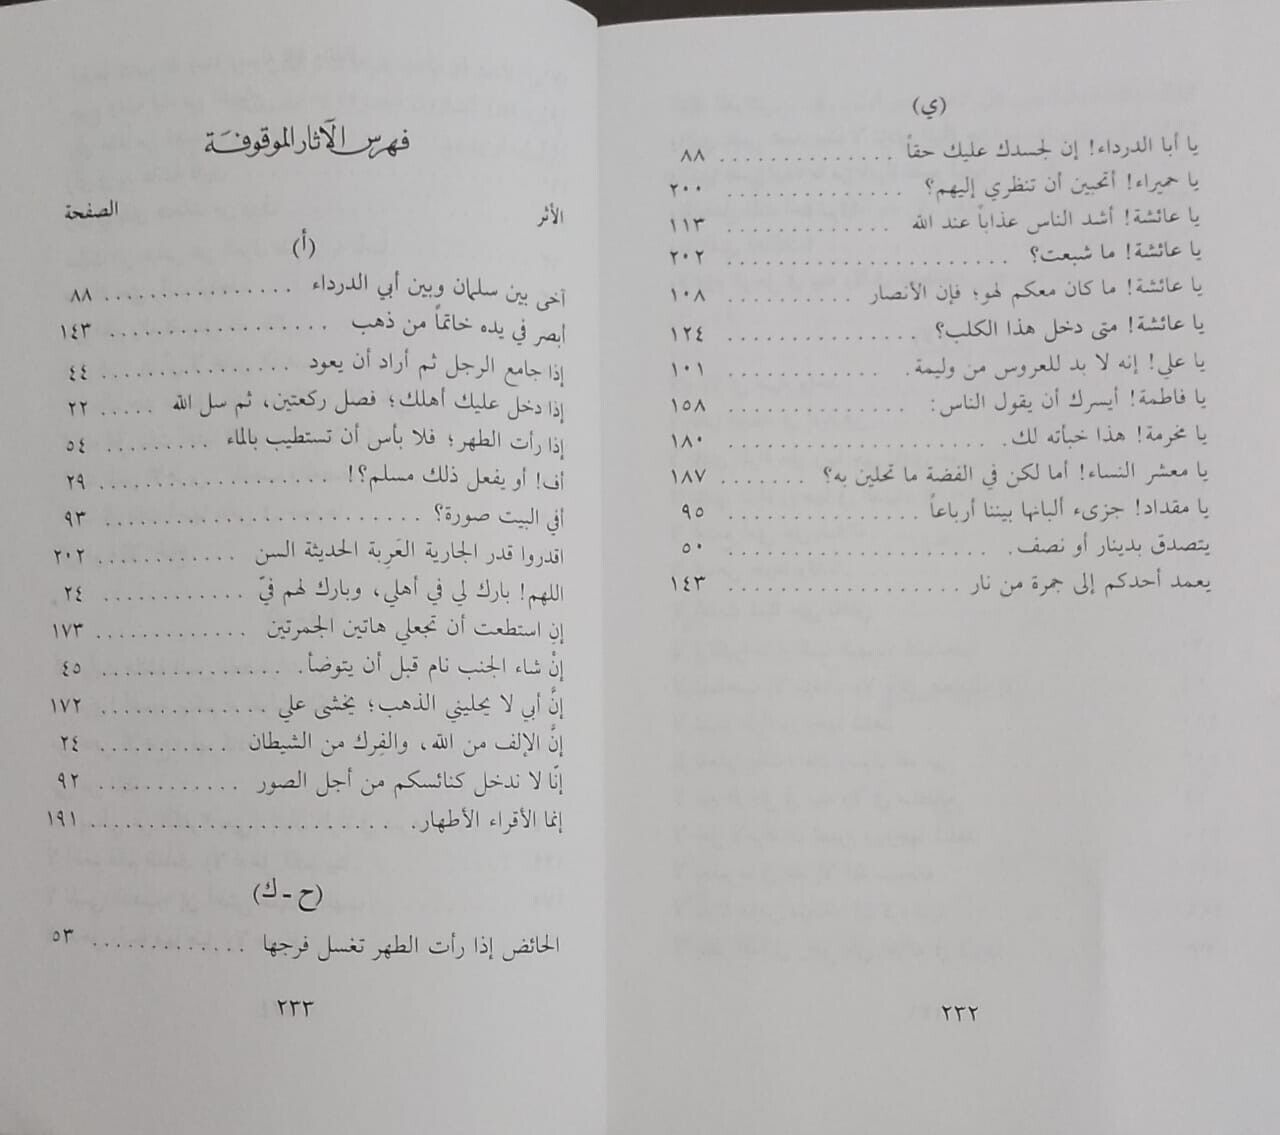 (ي)
يا أبا الدرداء! إن لجسدك عليك حقاً .............. ٨٨
يا حميراء! أتحبين أن تنظري إليهم؟ .............. ٢٠٠
يا عائشة! أشد الناس عذاباً عند الله .............. ١١٣
يا عائشة! ما شبعت؟ ....................... ٢٠٢
يا عائشة! ما كان معكم لهو؛ فإن الأنصار .......... ١٠٨
يا عائشة! متى دخل هذا الكلب؟ ................ ١٢٤
يا علي! إنه لا بد للعروس من وليمة. .............. ١٠١
يا فاطمة! أيسرك أن يقول الناس: .............. ١٥٨
يا مخرمة! هذا خبأته لك. .................... ١٨٠
يا معشر النساء! أما لكن في الفضة ما تحلين به؟ ....... ١٨٧
يا مقداد! جزىء ألبانها بيننا أرباعاً ............... ٩٥
يتصدق بدينار أو نصف. .................... ٥٠
يعمد أحدكم إلى جمرة من نار .................. ١٤٣
٢٣٢
فهرس الآثار الموقوفة
الأثر الصفحة
(أ)
آخى بين سلمان وبين أبي الدرداء ............... ٨٨
أبصر في يده خاتماً من ذهب ................. ١٤٣
إذا جامع الرجل ثم أراد أن يعود .............. ٤٤
إذا دخل عليك أهلك؛ فصل ركعتين، ثم سل الله ..... ٢٢
إذا رأت الطهر؛ فلا بأس أن تستطيب بالماء ........ ٥٤
أف! أو يفعل ذلك مسلم؟! ................... ٢٩
أفي البيت صورة؟ ........................ ٩٣
اقدروا قدر الجارية العَرِبة الحديثة السن ........... ٢٠٢
اللهم! بارك لي في أهلي، وبارك لهم فيّ ............ ٢٤
إنِ استطعت أن تجعلي هاتين الجمرتين ............ ١٧٣
إنْ شاء الجنب نام قبل أن يتوضأ. ............... ٤٥
إنَّ أبي لا يحليني الذهب؛ يخشى علي .............. ١٧٢
إنَّ الإلف من الله، والفِرك من الشيطان ........... ٢٤
إنّا لا ندخل كنائسكم من أجل الصور ............ ٩٢
إنما الأقراء الأطهار. ....................... ١٩١
(ح - ك)
الحائض إذا رأت الطهر تغسل فرجها ............. ٥٣
٢٣٣